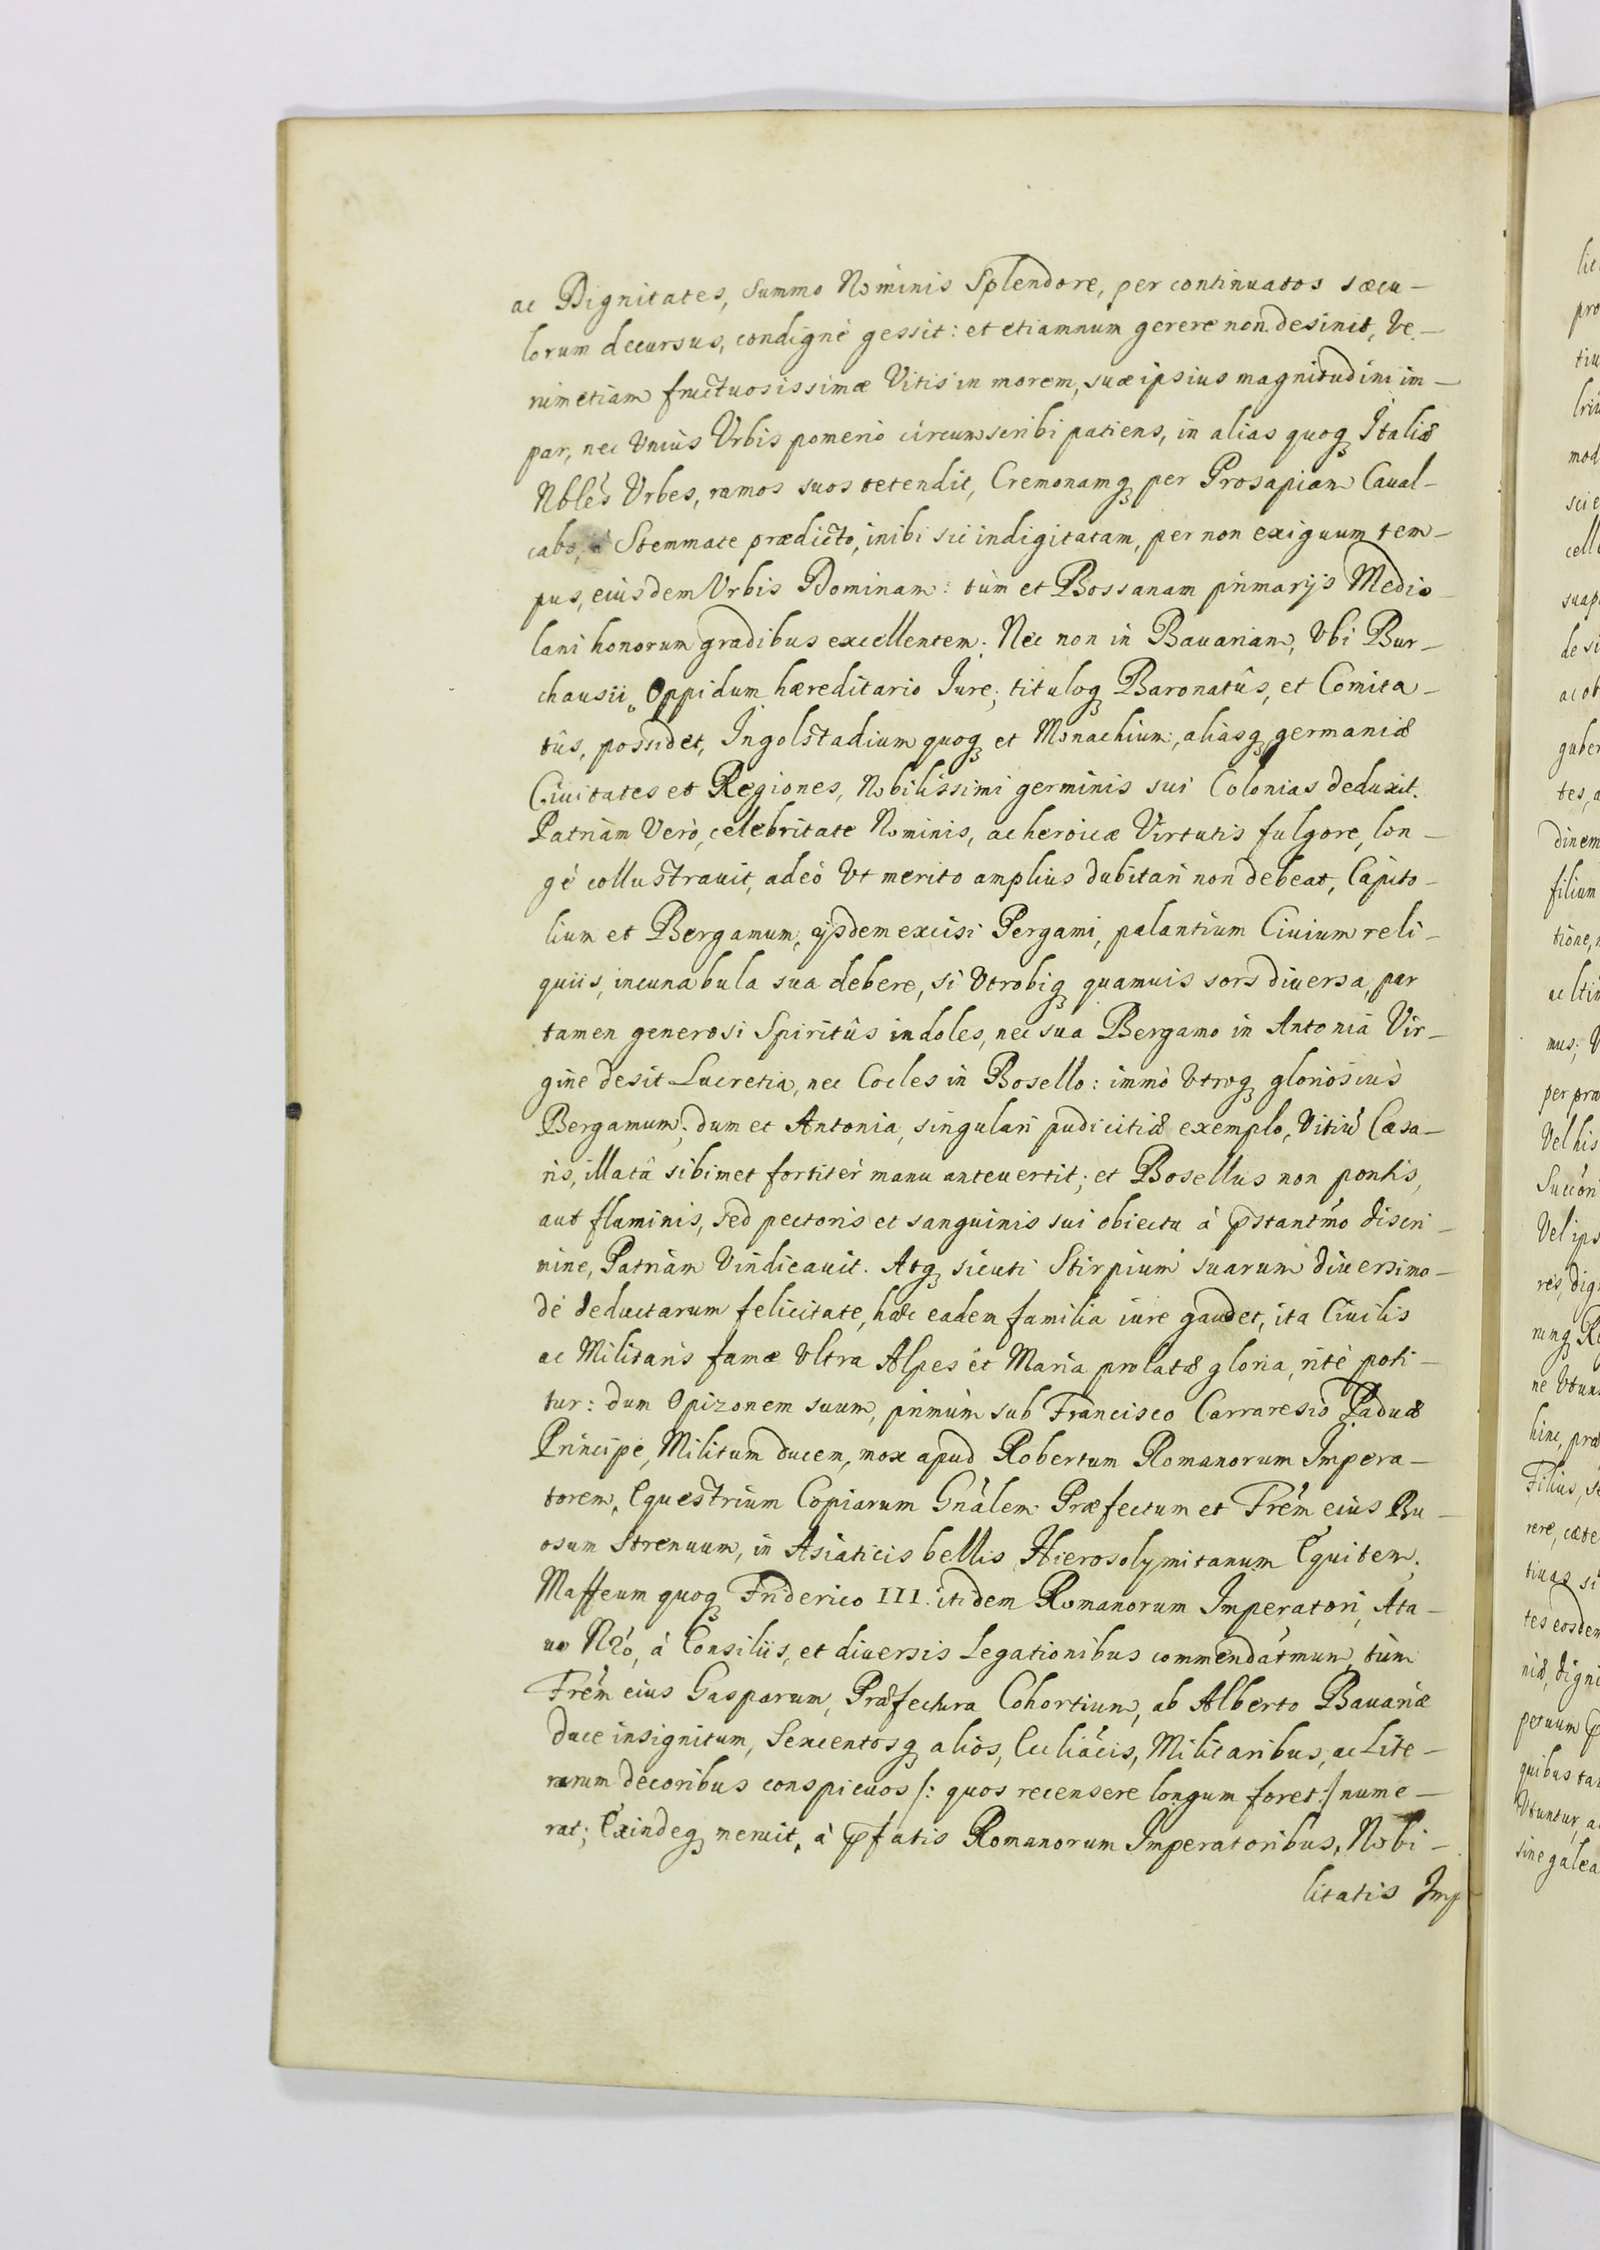 ac Dignitates, Summo Nominis Splendore, per continuatos sæcu-
lorum decursus, condignè gessit: et etiamnum gerere non desinit, Ve-
rum etiam fructuosissimæ Vitis in morem, suæ ipsius magnitudini im-
par, nec Vnius Vrbis pomerio circumscribi patiens, in alias quoq Italiæ
Nbles Vrbes, ramos suos tetendit, Cremonamq per Prosapiam Caual-
cabo, à Stemmate prædicto, inibi sic indigitatam, per non exiguum tem-
pus, eiusdem Vrbis Dominam: tùm et Bossanam primarijs Medio-
lani honorum gradibus excellentem; Nec non in Bauariam, Vbi Bur-
chausii, Oppidum hæreditario Iure; tituloq Baronatûs, et Comita-
tûs, possidet, Ingolstadium quoq et Monachium, aliasq germaniæ
Ciuitates et Regiones, Nobilissimi germinis sui Colonias deduxit.
Patriam Verò, celebritate Nominis, ac heroicæ Virtutis fulgore, lon-
gè collustrauit, adeò Vt merito amplius dubitari non debeat, Capito-
lium et Bergamum, ijsdem excisi Pergami, palantium Ciuium reli-
quiis, incunabula sua debere, si Vtrobiq quamuis sors diuersa, par
tamen generosi Spiritûs indoles, nec sua Bergamo in Antonia Vir-
gine desit Lucretia, nec Cocles in Bosello: immò Vtroq gloriosius
Bergamum; dum et Antonia, singulari pudicitiæ exemplo, Vitiũ Cæsa-
ris, illatâ sibimet fortitèr manu anteuertit; et Bosellus non pontis,
aut fluminis, sed pectoris et sanguinis sui obiectu à pstantmo discri-
mine, Patriam Vindicauit. Atq sicuti Stirpium suarum diuersimo-
dè deductarum felicitate, hæc eadem familia iure gaudet, ita Ciuilis
ac Militaris famæ Vltra Alpes et Maria prolatæ gloria, ritè poti-
tur: dum Opizonem suum, primùm sub Francisco Carraresio Paduæ
Principe, Militum ducem, mox apud Robertum Romanorum Impera-
torem, Equestrium Copiarum Gnàlem Præfectum et Frém eius Bu-
osum Strenuum, in Asiaticis bellis Hierosolymitanum Equitem;
Maffeum quoq Friderico III. itidem Romanorum Imperatori, Ata-
uo Nrò, à Consiliis, et diuersis Legationibus commendatmum, tùm
Frém eius Gasparum, Præfectura Cohortium, ab Alberto Bauariæ
duce insignitum, Sexcentosq alios, Eccliácis, Militaribus, ac Lite-
rarum decoribus conspicuos /: quos recensere longum foret :/ nume-
rat; Exindeq meruit, à pfatis Romanorum Imperatoribus, Nobi-
litatis Imp